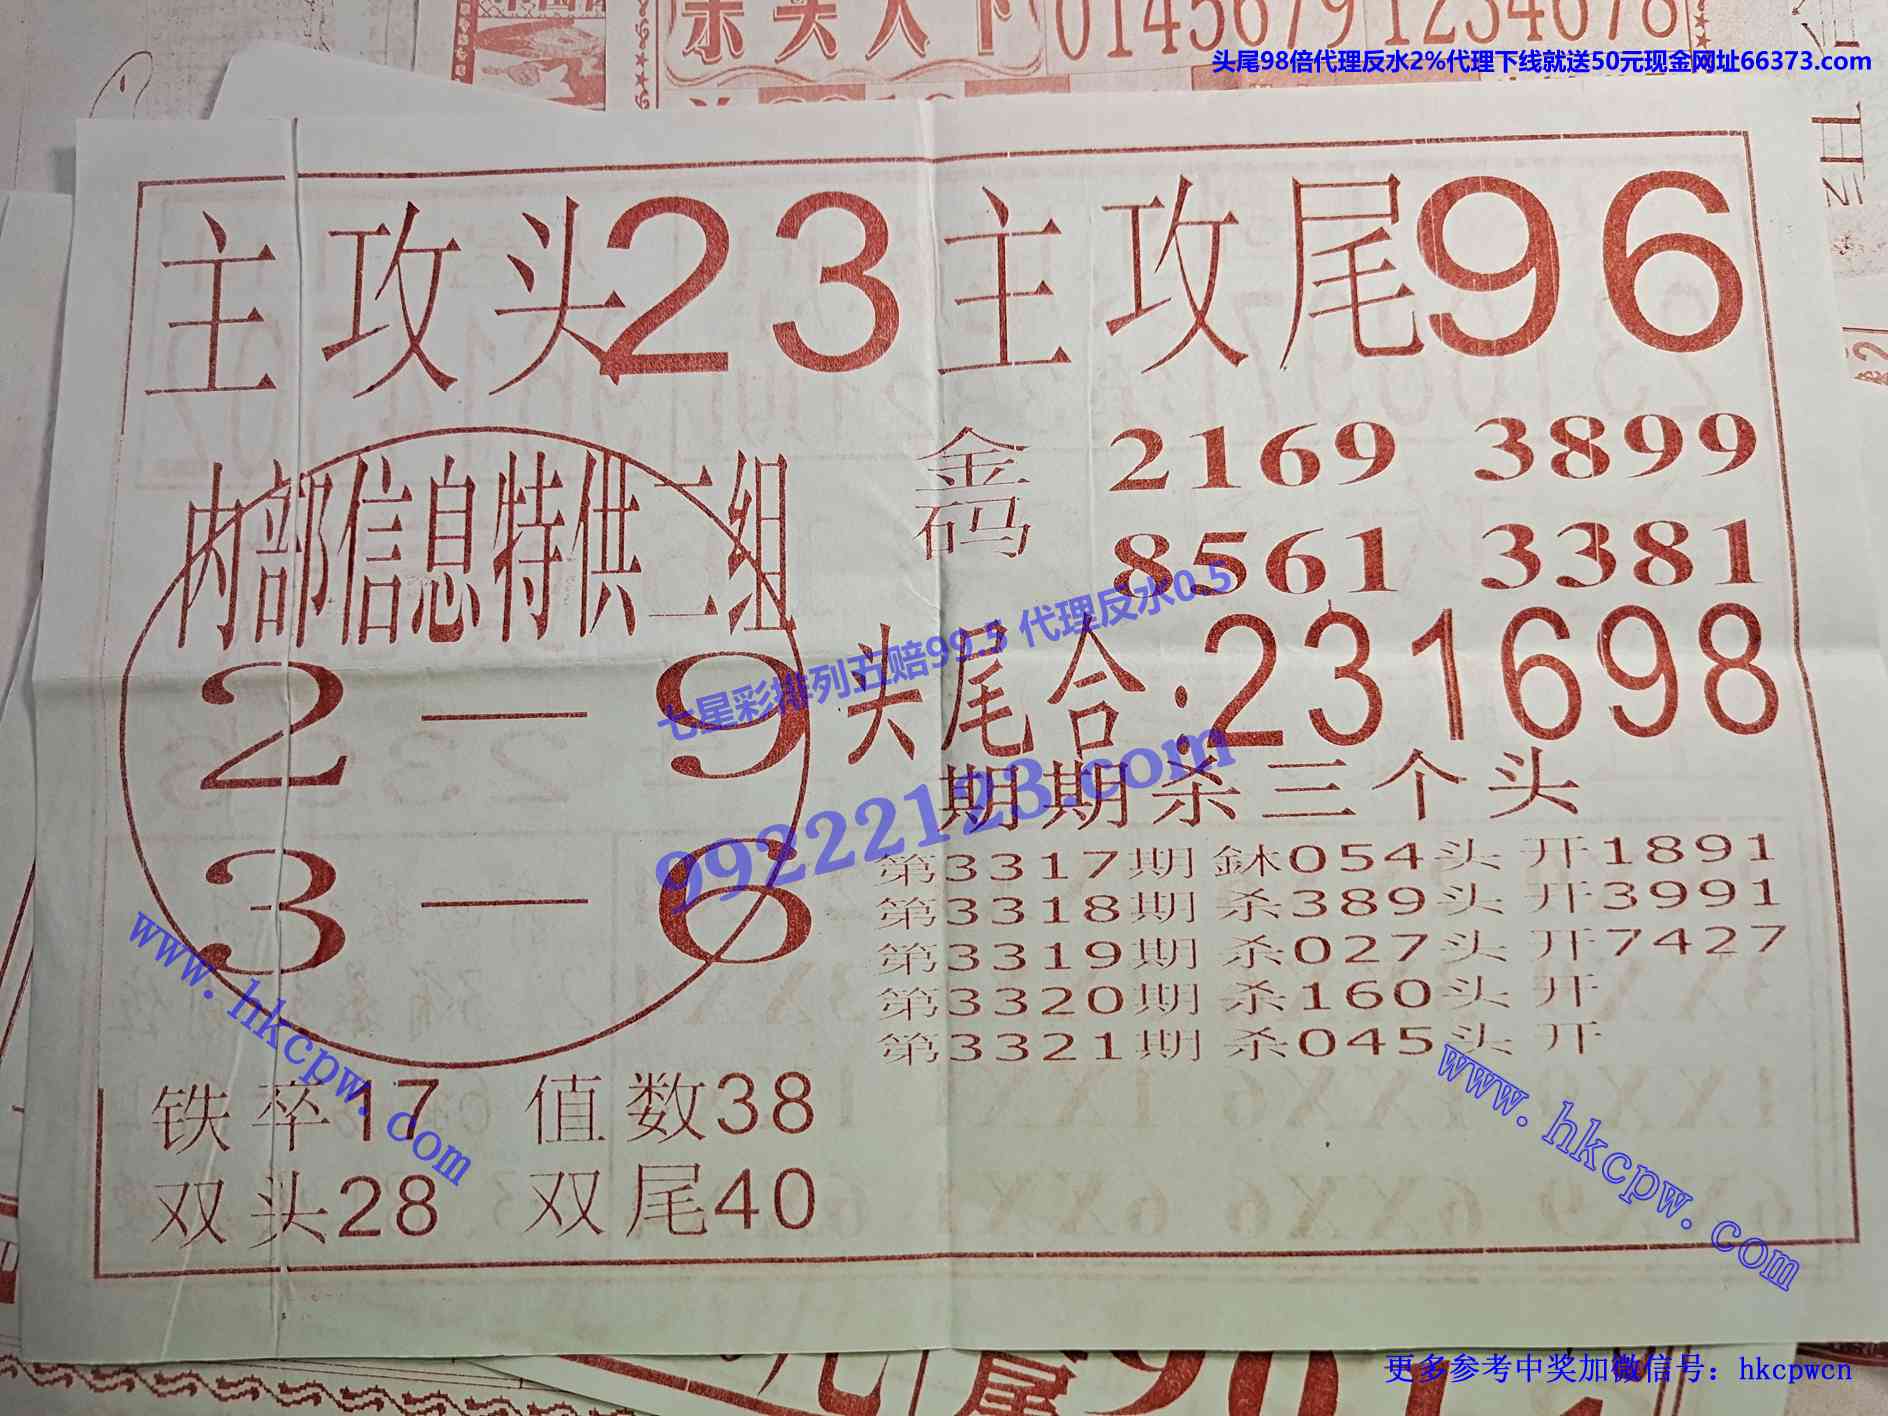 杀头人下 0145679 1234678
头尾98倍代理反水2%代理下线就送50元现金网址66373.com
主攻头23 主攻尾96
内部信息特供二组
2—9
3—6
金码 2169 3899
8561 3381
头尾合:231698
期期杀三个头
第3317期 鉥054头 开1891
第3318期 杀389头 开3991
第3319期 杀027头 开7427
第3320期 杀160头 开
第3321期 杀045头 开
铁卒17 值数38
双头28 双尾40
七星彩排列五赔99.5 代理反水0.5
99222123.com
www.hkcpw.com
www.hkcpw.com
更多参考中奖加微信号：hkcpwcn